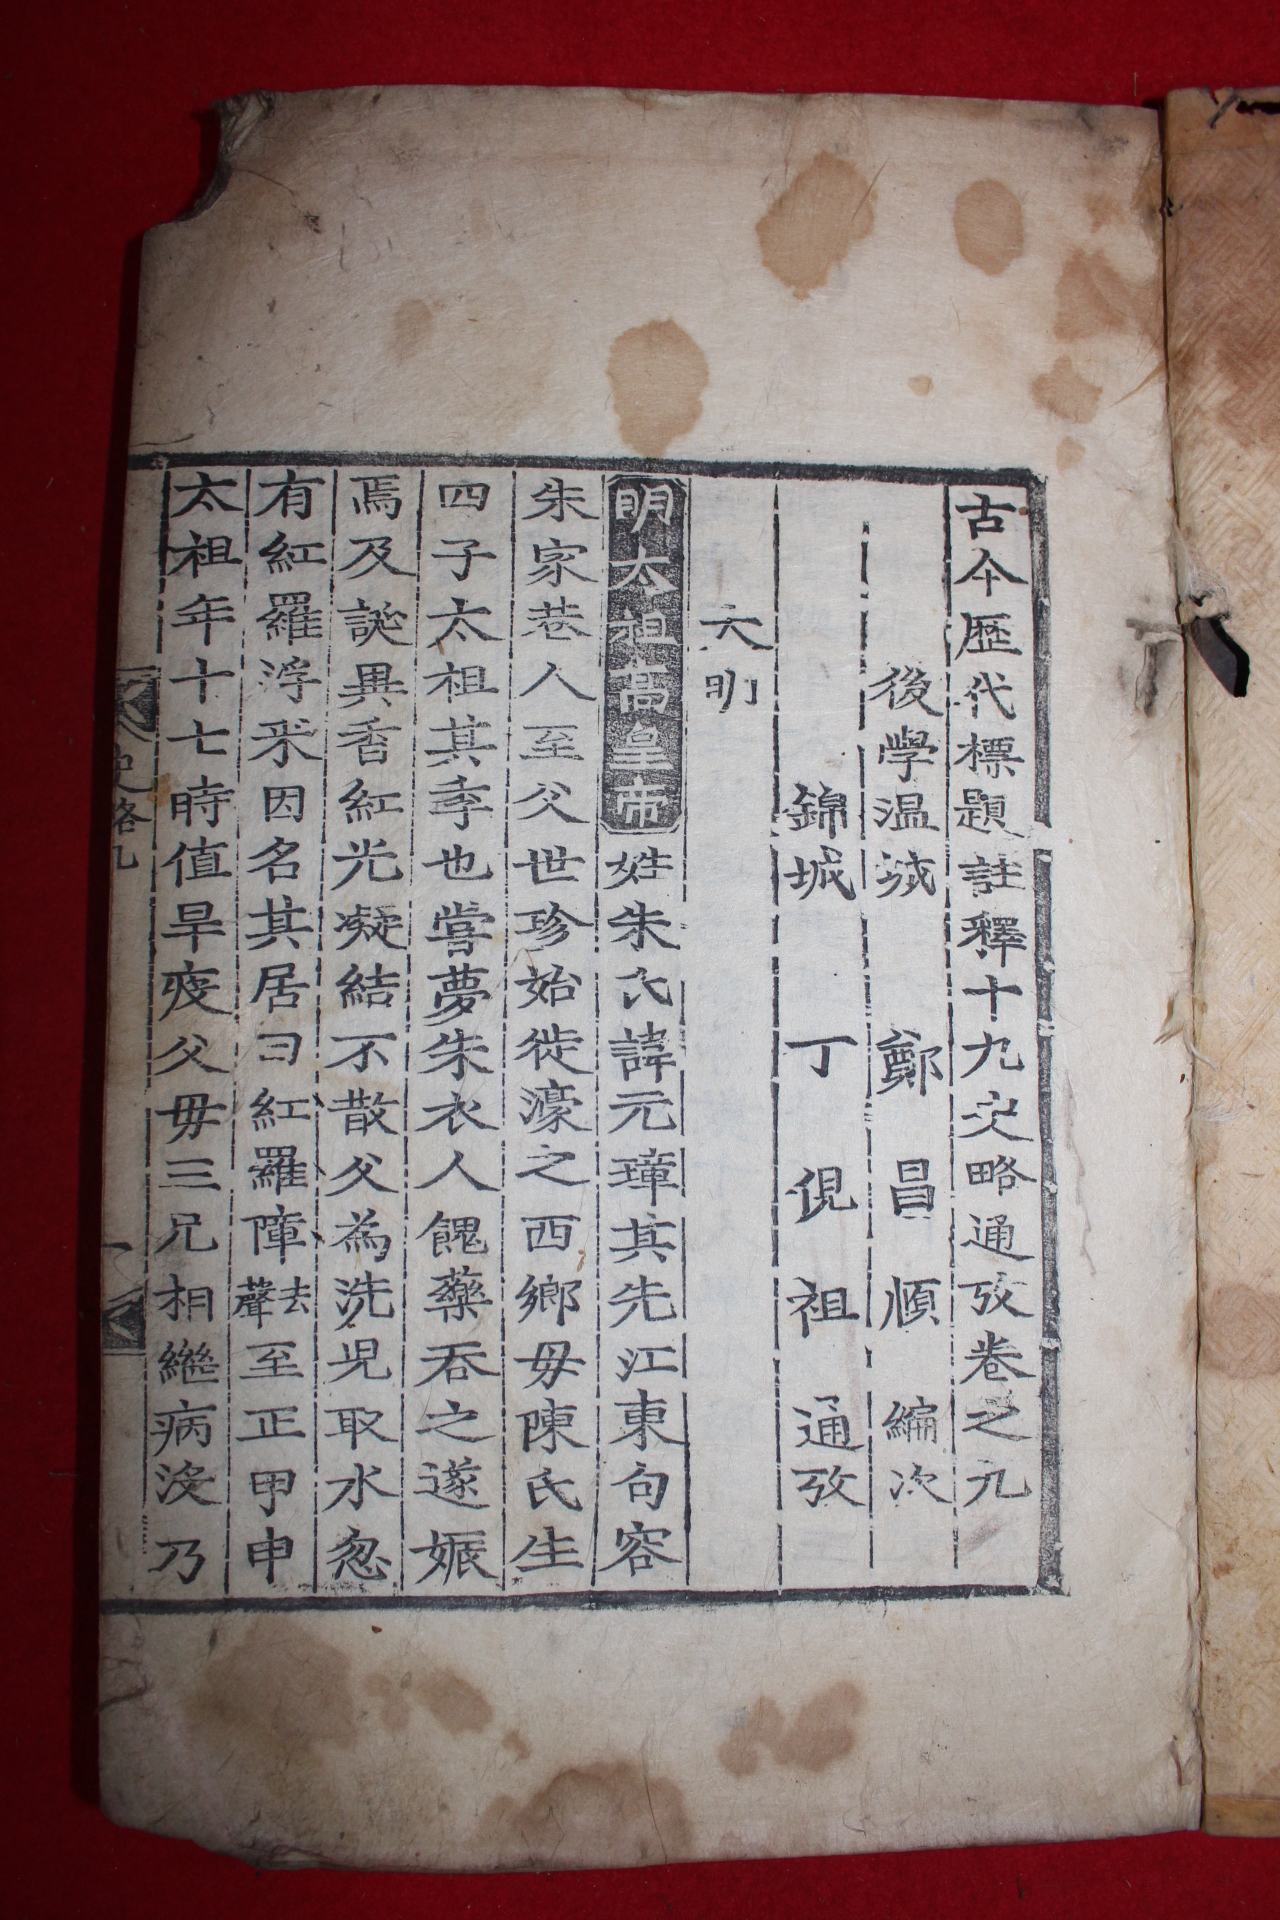 古今歷代標題註釋十九史略通攷卷之九
後學温城 鄭昌順 編次
錦城 丁俔祖 通攷
大明
明太祖高皇帝姓朱氏諱元璋其先江東句容
朱家巷人至父世珍始徙濠之西鄉毋陳氏生
四子太祖其季也嘗夢朱衣人餽藥吞之遂娠
焉及誕異香紅光凝結不散父為洗児取水忽
有紅羅浮来因名其居曰紅羅障去聲至正甲申
太祖年十七時值旱疫父毋三兄相繼病沒乃
史略九
一